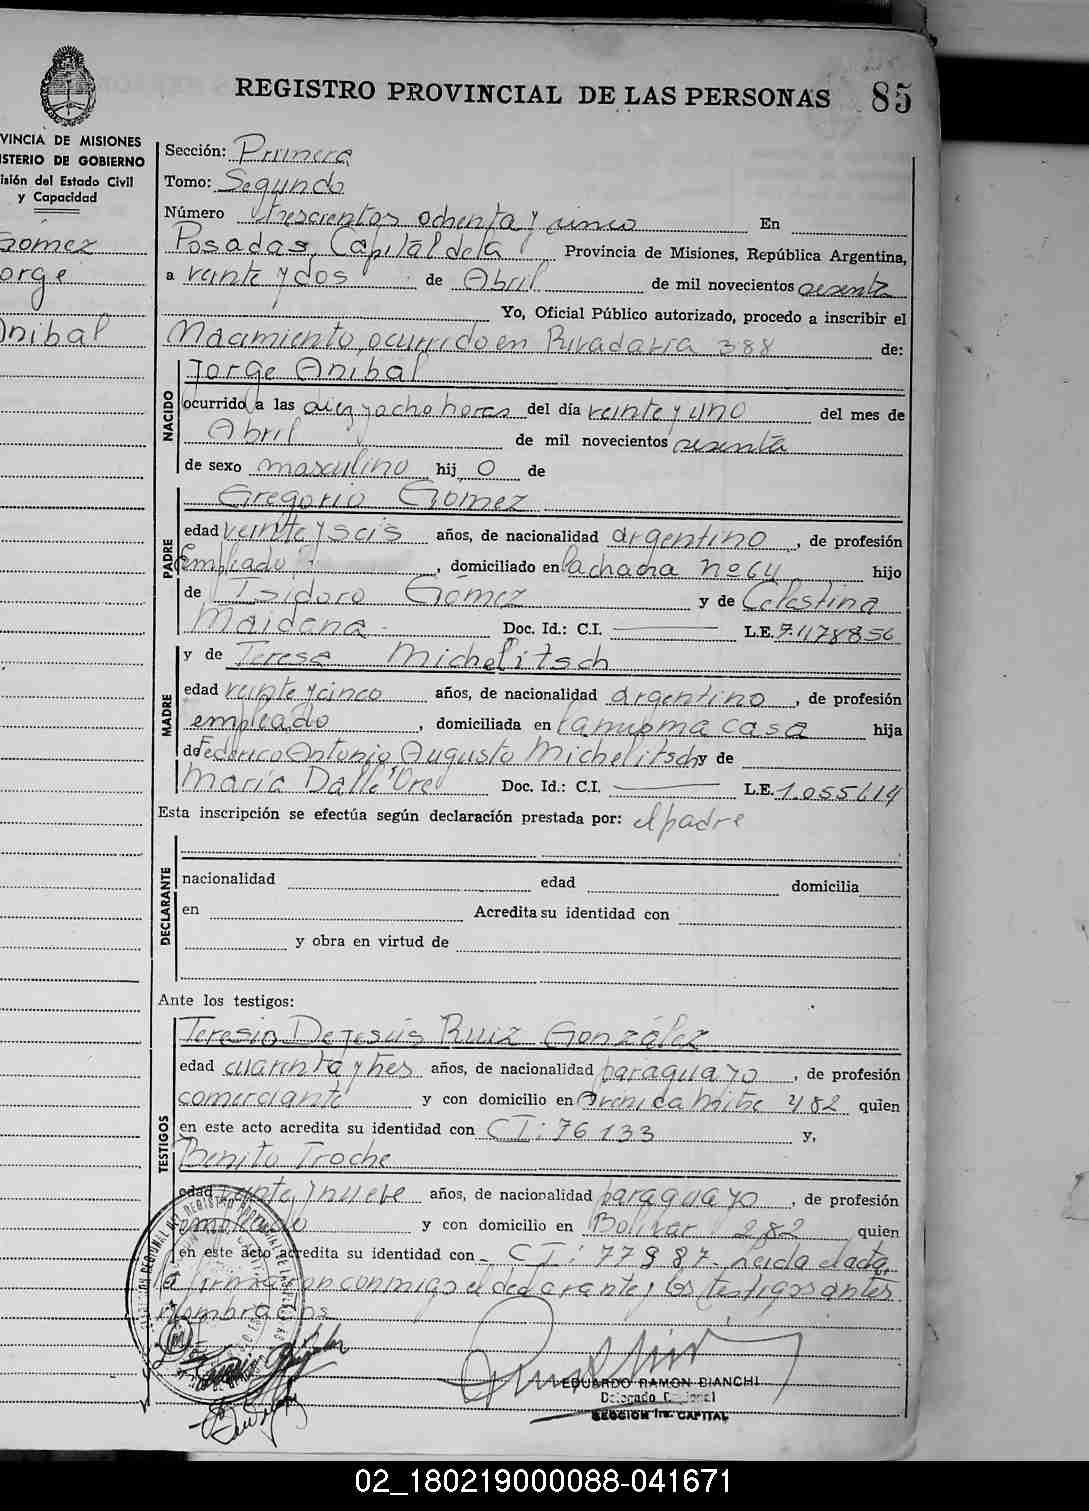 REGISTRO PROVINCIAL DE LAS PERSONAS 85
VINCIA DE MISIONES
ISTERIO DE GOBIERNO
isión del Estado Civil
y Capacidad
Gomez
orge
Anibal
Sección: Primera
Tomo: Segundo
Número trescientos ochenta y cinco En
Posadas, Capital de la Provincia de Misiones, República Argentina,
a veinte y dos de Abril de mil novecientos sesenta
Yo, Oficial Público autorizado, procedo a inscribir el
Nacimiento, ocurrido en Rivadavia 388 de:
NACIDO
Jorge Anibal
ocurrido a las diez y ocho horas del día veinte y uno del mes de
Abril de mil novecientos sesenta
de sexo masculino hij o de
PADRE
Gregorio Gomez
edad veinte y seis años, de nacionalidad argentino, de profesión
Empleado, domiciliado en la chacra nº 64 hijo
de Isidoro Gómez y de Celestina
Maidana Doc. Id.: C.I. L.E. 7.478856
MADRE
y de Teresa Michelitsch
edad veinte y cinco años, de nacionalidad argentino, de profesión
empleado, domiciliada en la misma casa hija
de Federico Antonio Augusto Michelitsch y de
María Dalle Ore Doc. Id.: C.I. L.E. 1.055614
Esta inscripción se efectúa según declaración prestada por: el padre
DECLARANTE
nacionalidad edad domicilia
en Acredita su identidad con
y obra en virtud de
Ante los testigos:
TESTIGOS
Teresio De Jesús Ruiz González
edad cuarenta y tres años, de nacionalidad paraguayo, de profesión
comerciante y con domicilio en Avenida Mitre 482 quien
en este acto acredita su identidad con CI: 76133 y,
Benito Troche
edad veinte y nueve años, de nacionalidad paraguayo, de profesión
empleado y con domicilio en Bolivar 282 quien
en este acto acredita su identidad con CI: 77987. Leida el acta,
firmaron conmigo el declarante y los testigos antes
nombrados
EDUARDO RAMON BIANCHI
Delegado
SECCION 1ra. CAPITAL
02_180219000088-041671